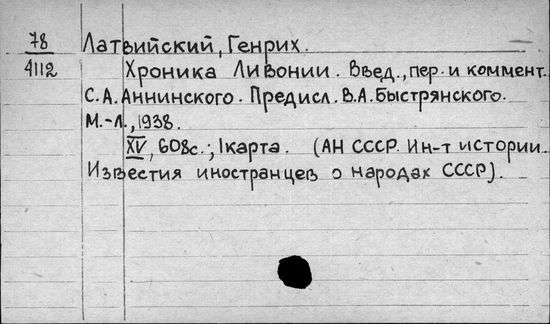 78 Латвийский, Генрих.
4112 Хроника Ливонии. Введ., пер. и коммент.
С.А. Аннинского. Предисл. В.А. Быстрянского.
М.-Л., 1938.
XV, 608с.; 1карта. (АН СССР. Ин-т истории.
Известия иностранцев о народах СССР).